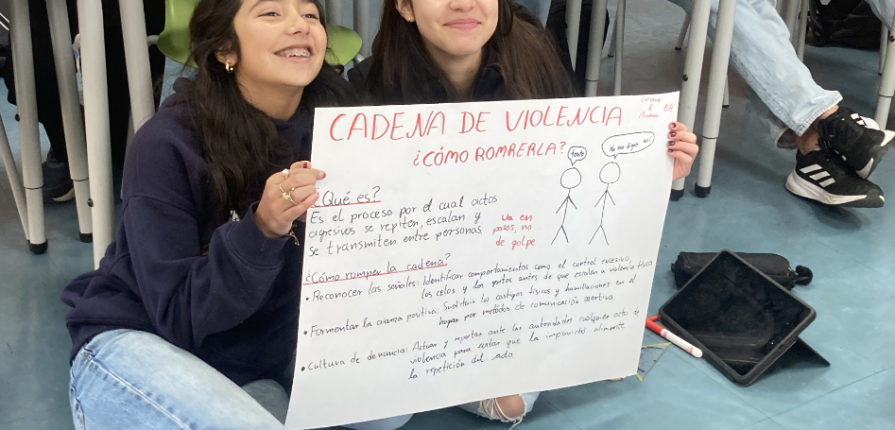 CADENA DE VIOLENCIA
¿CÓMO ROMPERLA?
8A
tonto
No me digas así
¿Qué es?
Es el proceso por el cual actos
agresivos se repiten, escalan y
se transmiten entre personas
Va en
pasos, no
de golpe
¿Cómo romper la cadena?
• Reconocer las señales: Identificar comportamientos como el control excesivo,
los celos y los gritos antes de que escalen a violencia física
• Formentar la crianza positiva: Sustituir los castigos físicos y humillaciones en el
hogar por metodos de comunicación asertiva
• Cultura de denuncia: Actuar y reportar ante las autoridades cualquier acto de
violencia para evitar que la impunidad alimente
la repetición del